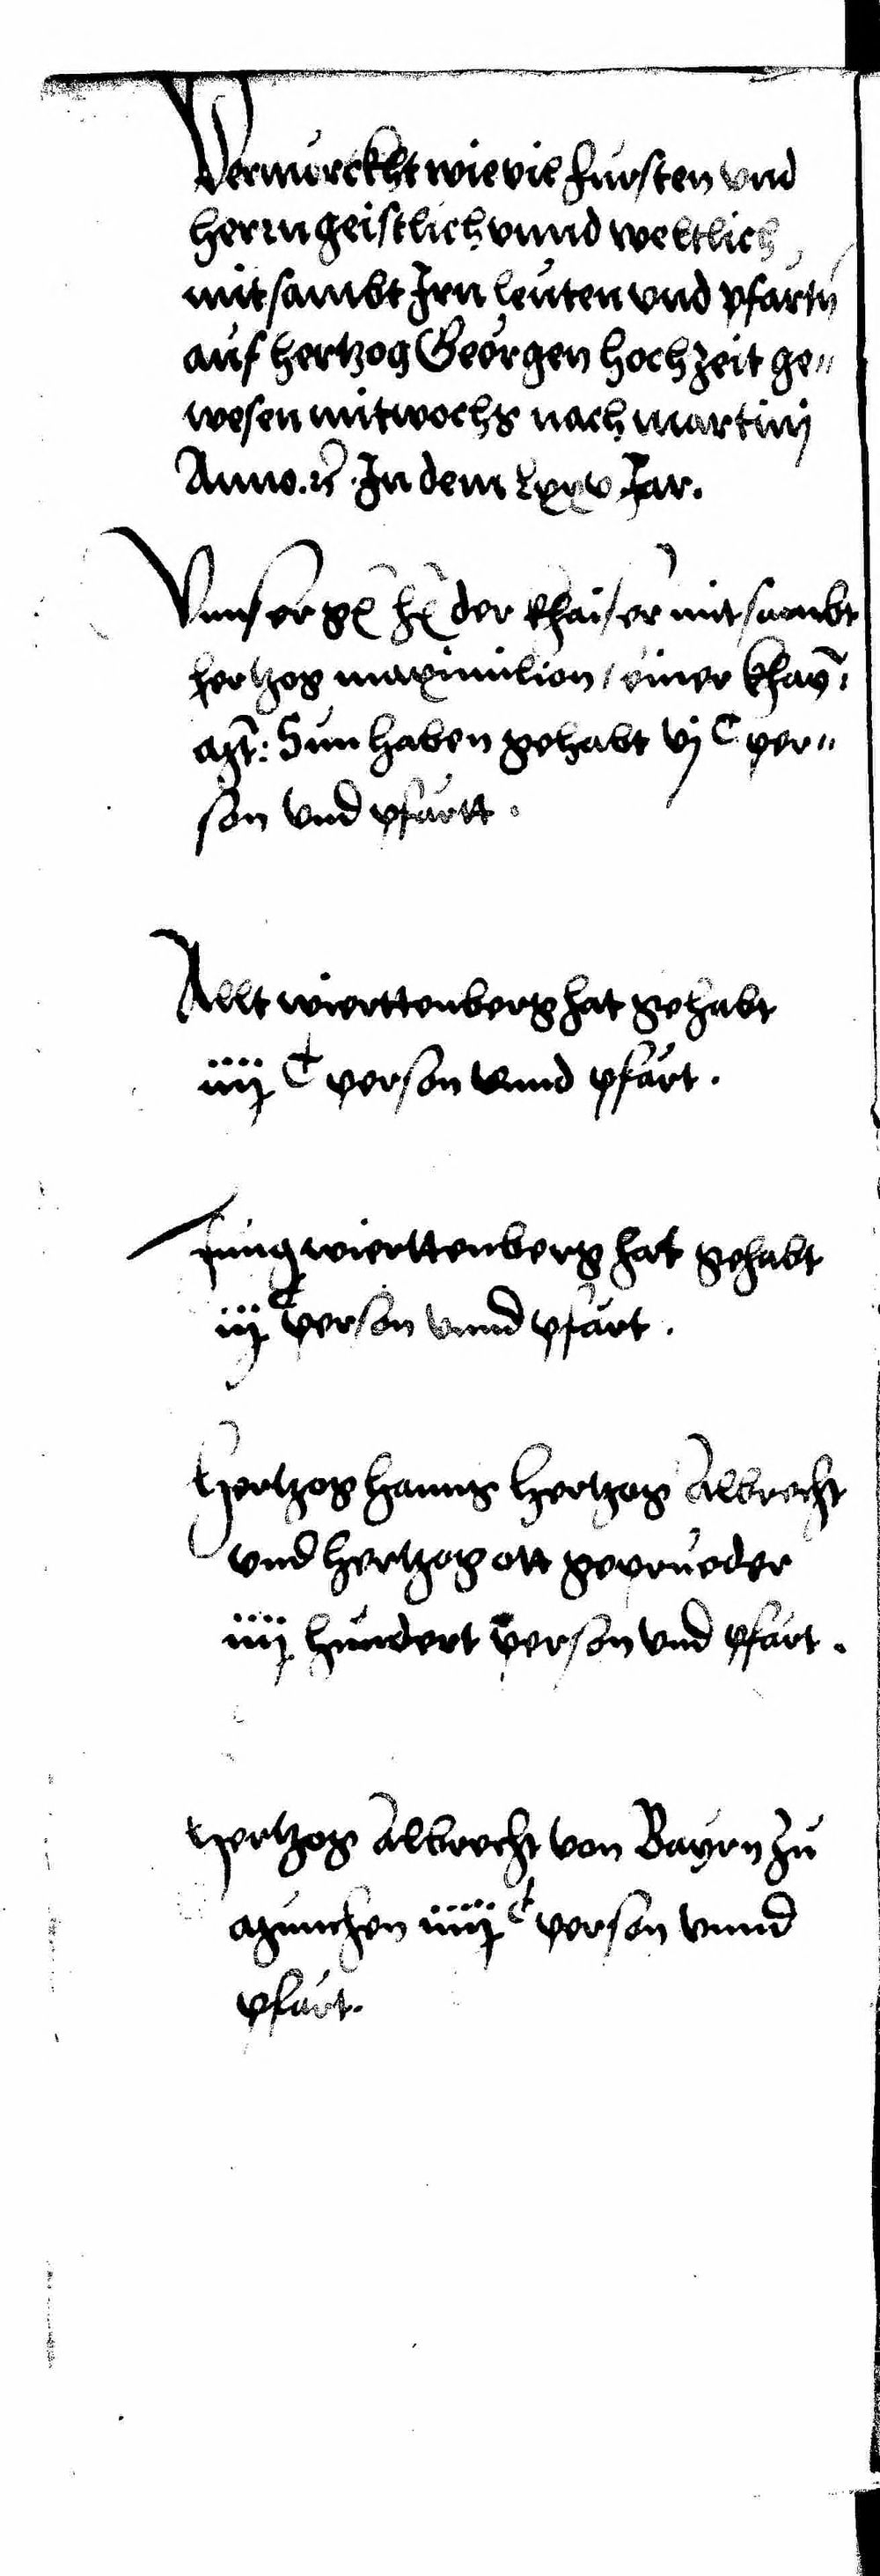 Vermurckht wie vil Fursten vnd
herrn geistlich vnnd weltlich
mitsambt Irn leuten vnd pfartn
auf hertzog Georgen hochzeit ge„
wesen mitwochs nach martinj
Anno. In dem Lxxv Jar.
Vnnser der khaiser mitsambt
hertzog maximilion / einer khay:
Sun haben gehabt vj C per„
son vnd pfartt.
Allt wierttenberg hat gehabt
iiij C person vnnd pfart.
Jung wierttenberg hat gehabt
iij C person vnnd pfart.
Hertzog hanns Hertzog Albrecht
vnd Hertzog ott geprueder
iiij hundert person vnd pfart.
Hertzog Albrecht von Bayrn zu
Munchen iiiij C person vnnd
pfart.